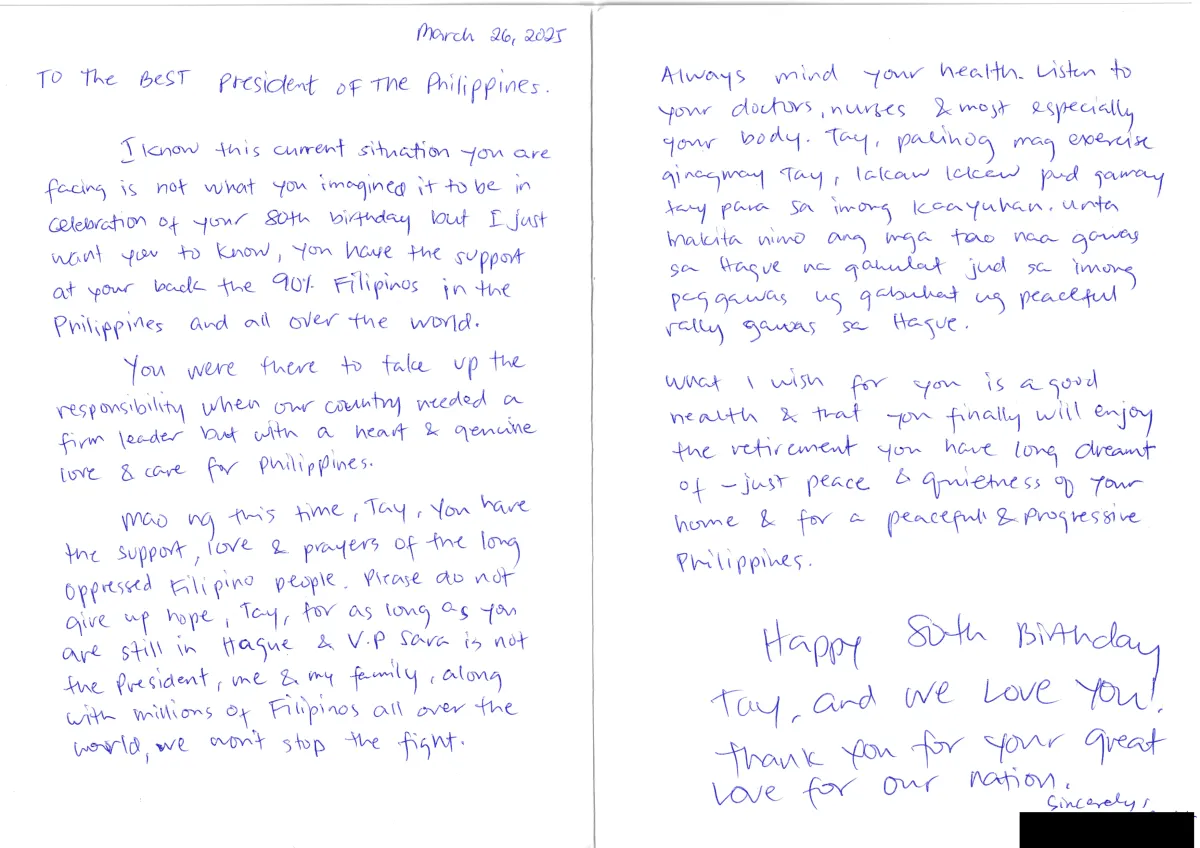 March 26, 2025
TO The BEST President OF The Philippines.
I know this current situation you are
facing is not what you imagined it to be in
celebration of your 80th birthday but I just
want you to know, you have the support
at your back the 90% Filipinos in the
Philippines and all over the world.
You were there to take up the
responsibility when our country needed a
firm leader but with a heart & genuine
love & care for Philippines.
Mao ng this time, Tay, You have
the support, love & prayers of the long
oppressed Filipino people. Please do not
give up hope, Tay, for as long as you
are still in Hague & V.P Sara is not
the President, me & my family, along
with millions of Filipinos all over the
world, we won't stop the fight.
Always mind your health. Listen to
your doctors, nurses & most especially
your body. Tay, palihog mag exercise
ginagmay Tay, lakaw lakaw pud gamay
tay para sa imong kaayuhan. unta
makita nimo ang mga tao naa gawas
sa Hague na gahulat jud sa imong
paggawas ug gabuhat ug peaceful
rally gawas sa Hague.
What I wish for you is a good
health & that you finally will enjoy
the retirement you have long dreamt
of - just peace & quietness of your
home & for a peaceful & progressive
Philippines.
Happy 80th Birthday
Tay, and we love you!
Thank you for your great
love for our nation.
Sincerely,